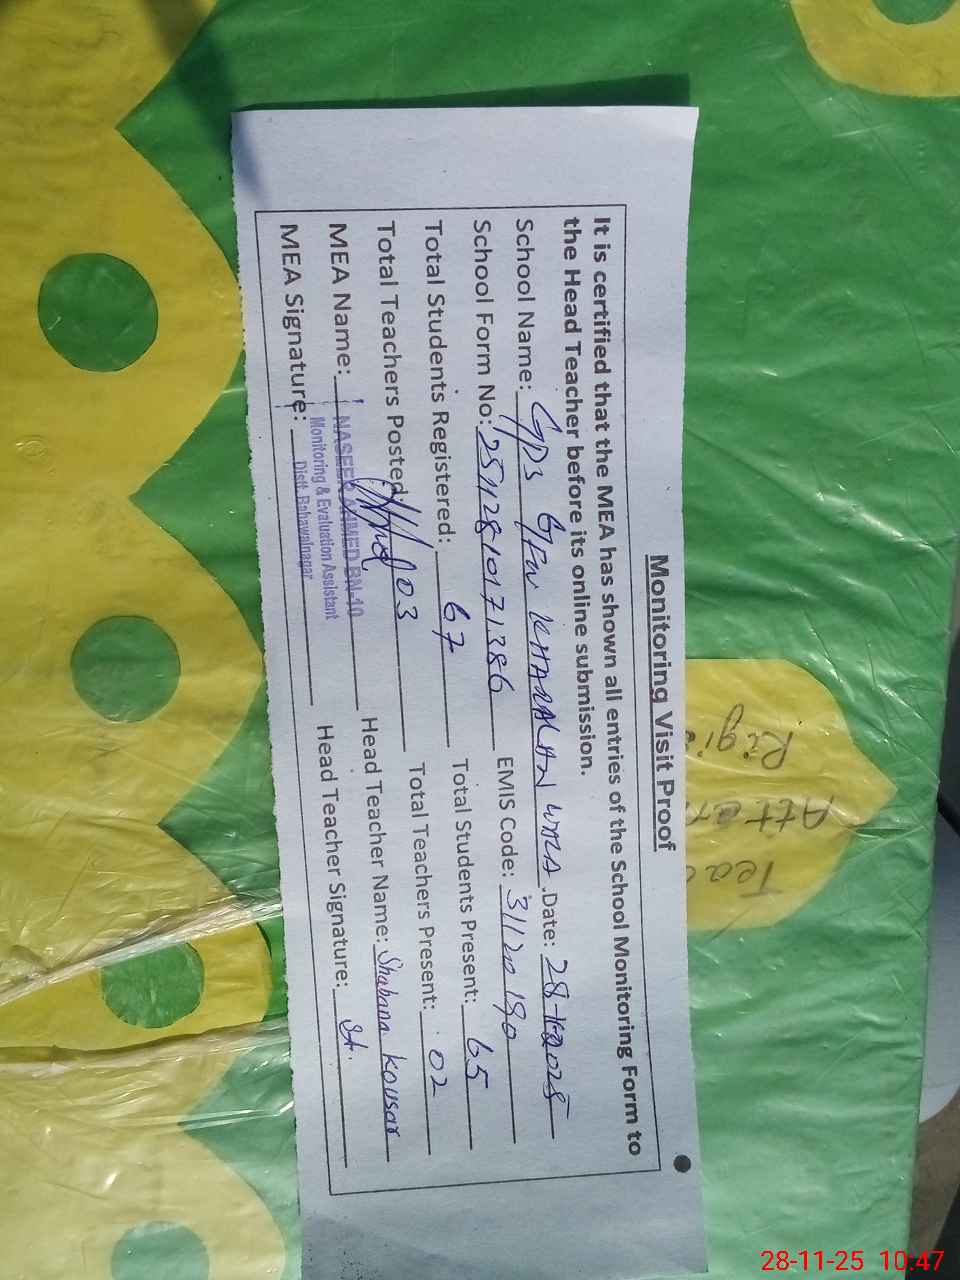 Monitoring Visit Proof
It is certified that the MEA has shown all entries of the School Monitoring Form to
the Head Teacher before its online submission.
School Name: GPS KHARALAN WALA Date: 28-11-2025
School Form No: 25112810171386 EMIS Code: 31120190
Total Students Registered: 67 Total Students Present: 65
Total Teachers Posted: 03 Total Teachers Present: 02
MEA Name: NASEER AHMED BN-10 Head Teacher Name: Shabana Kousar
Monitoring & Evaluation Assistant
MEA Signature: Distt. Bahawalnagar Head Teacher Signature:
Tea
Atten
Rigis
28-11-25 10:47